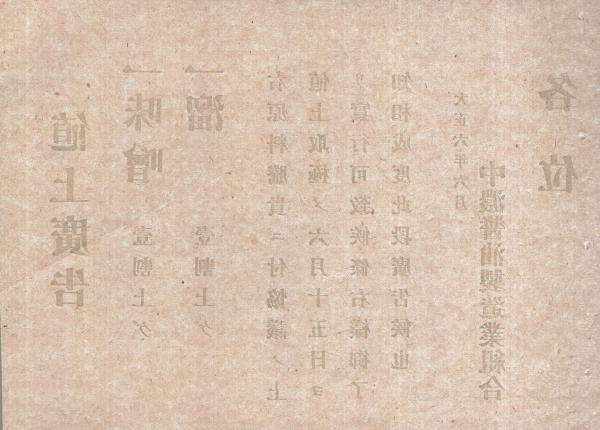 値上廣告
一味噌 壹割上ゲ
一溜 壹割上ゲ
右原料騰貴ニ付協議ノ上
値上取極メ六月十五日ヨ
リ實行可致候條右樣御了
知相成度此段廣告候也
大正六年六月
中濃醤油製造業組合
各位